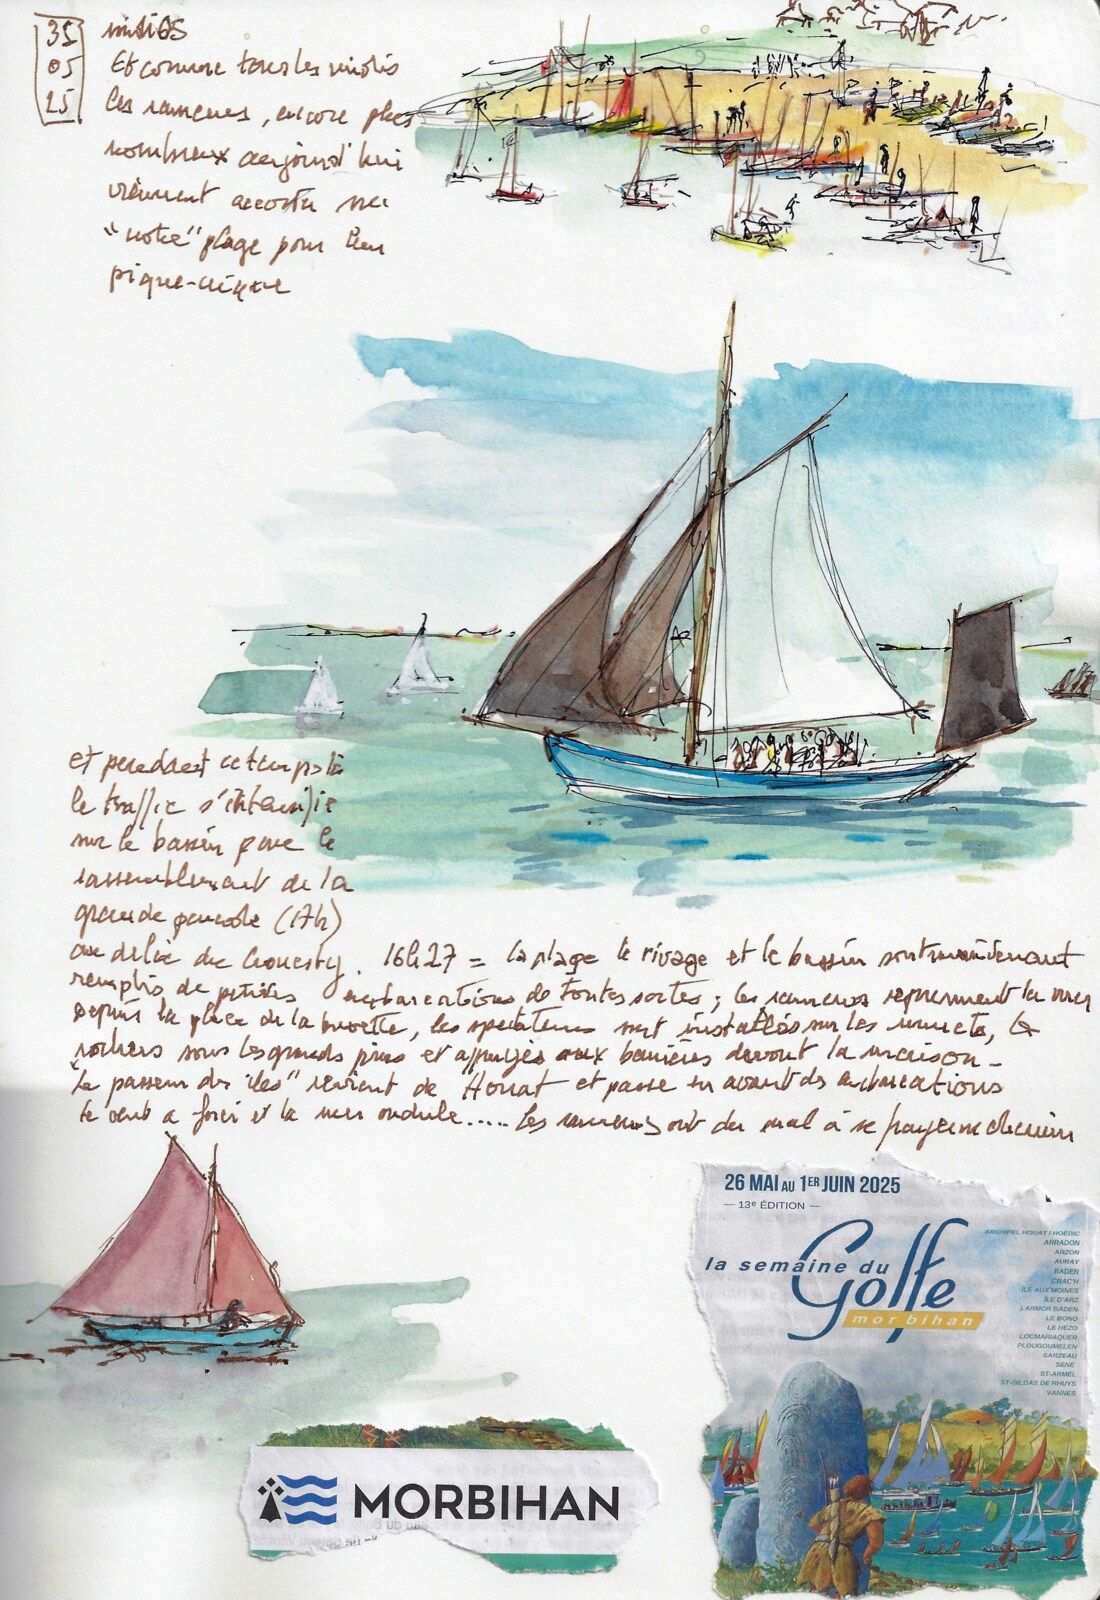 31
05
25
midi 05
Et comme tous les midis
les rameurs, encore plus
nombreux aujourd'hui
viennent accoster sur
"notre" plage pour leur
pique-nique
et pendant ce temps là
le traffic s'intensifie
sur le bassin pour le
rassemblement de la
grande parade (17h)
au delà du Crouesty. 16h27 = la plage le rivage et le bassin sont maintenant
remplis de petites embarcations de toutes sortes ; les rameurs reprennent la mer
depuis la place de la buvette, les spectateurs sont installés sur les murets, les
rochers sous les grands pins et appuyés aux barrières devant la maison -
"Le passeur des îles" revient de Houat et passe en avant des embarcations
le vent a forci et la mer ondule..... Les rameurs ont du mal à se frayer un chemin
26 MAI AU 1ER JUIN 2025
— 13e ÉDITION —
la semaine du
Golfe
morbihan
ARCHIPEL HOUAT / HOËDIC
ARRADON
ARZON
AURAY
BADEN
CRAC'H
ÎLE AUX MOINES
ÎLE D'ARZ
LARMOR BADEN
LE BONO
LE HÉZO
LOCMARIAQUER
PLOUGOUMELEN
SARZEAU
SENÉ
ST-ARMEL
ST-GILDAS DE RHUYS
VANNES
MORBIHAN